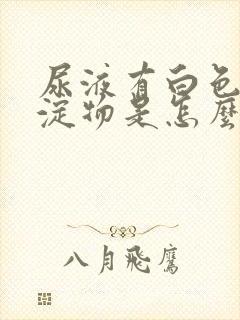 尿液有白色
淀物是怎麽
八月飛鷹